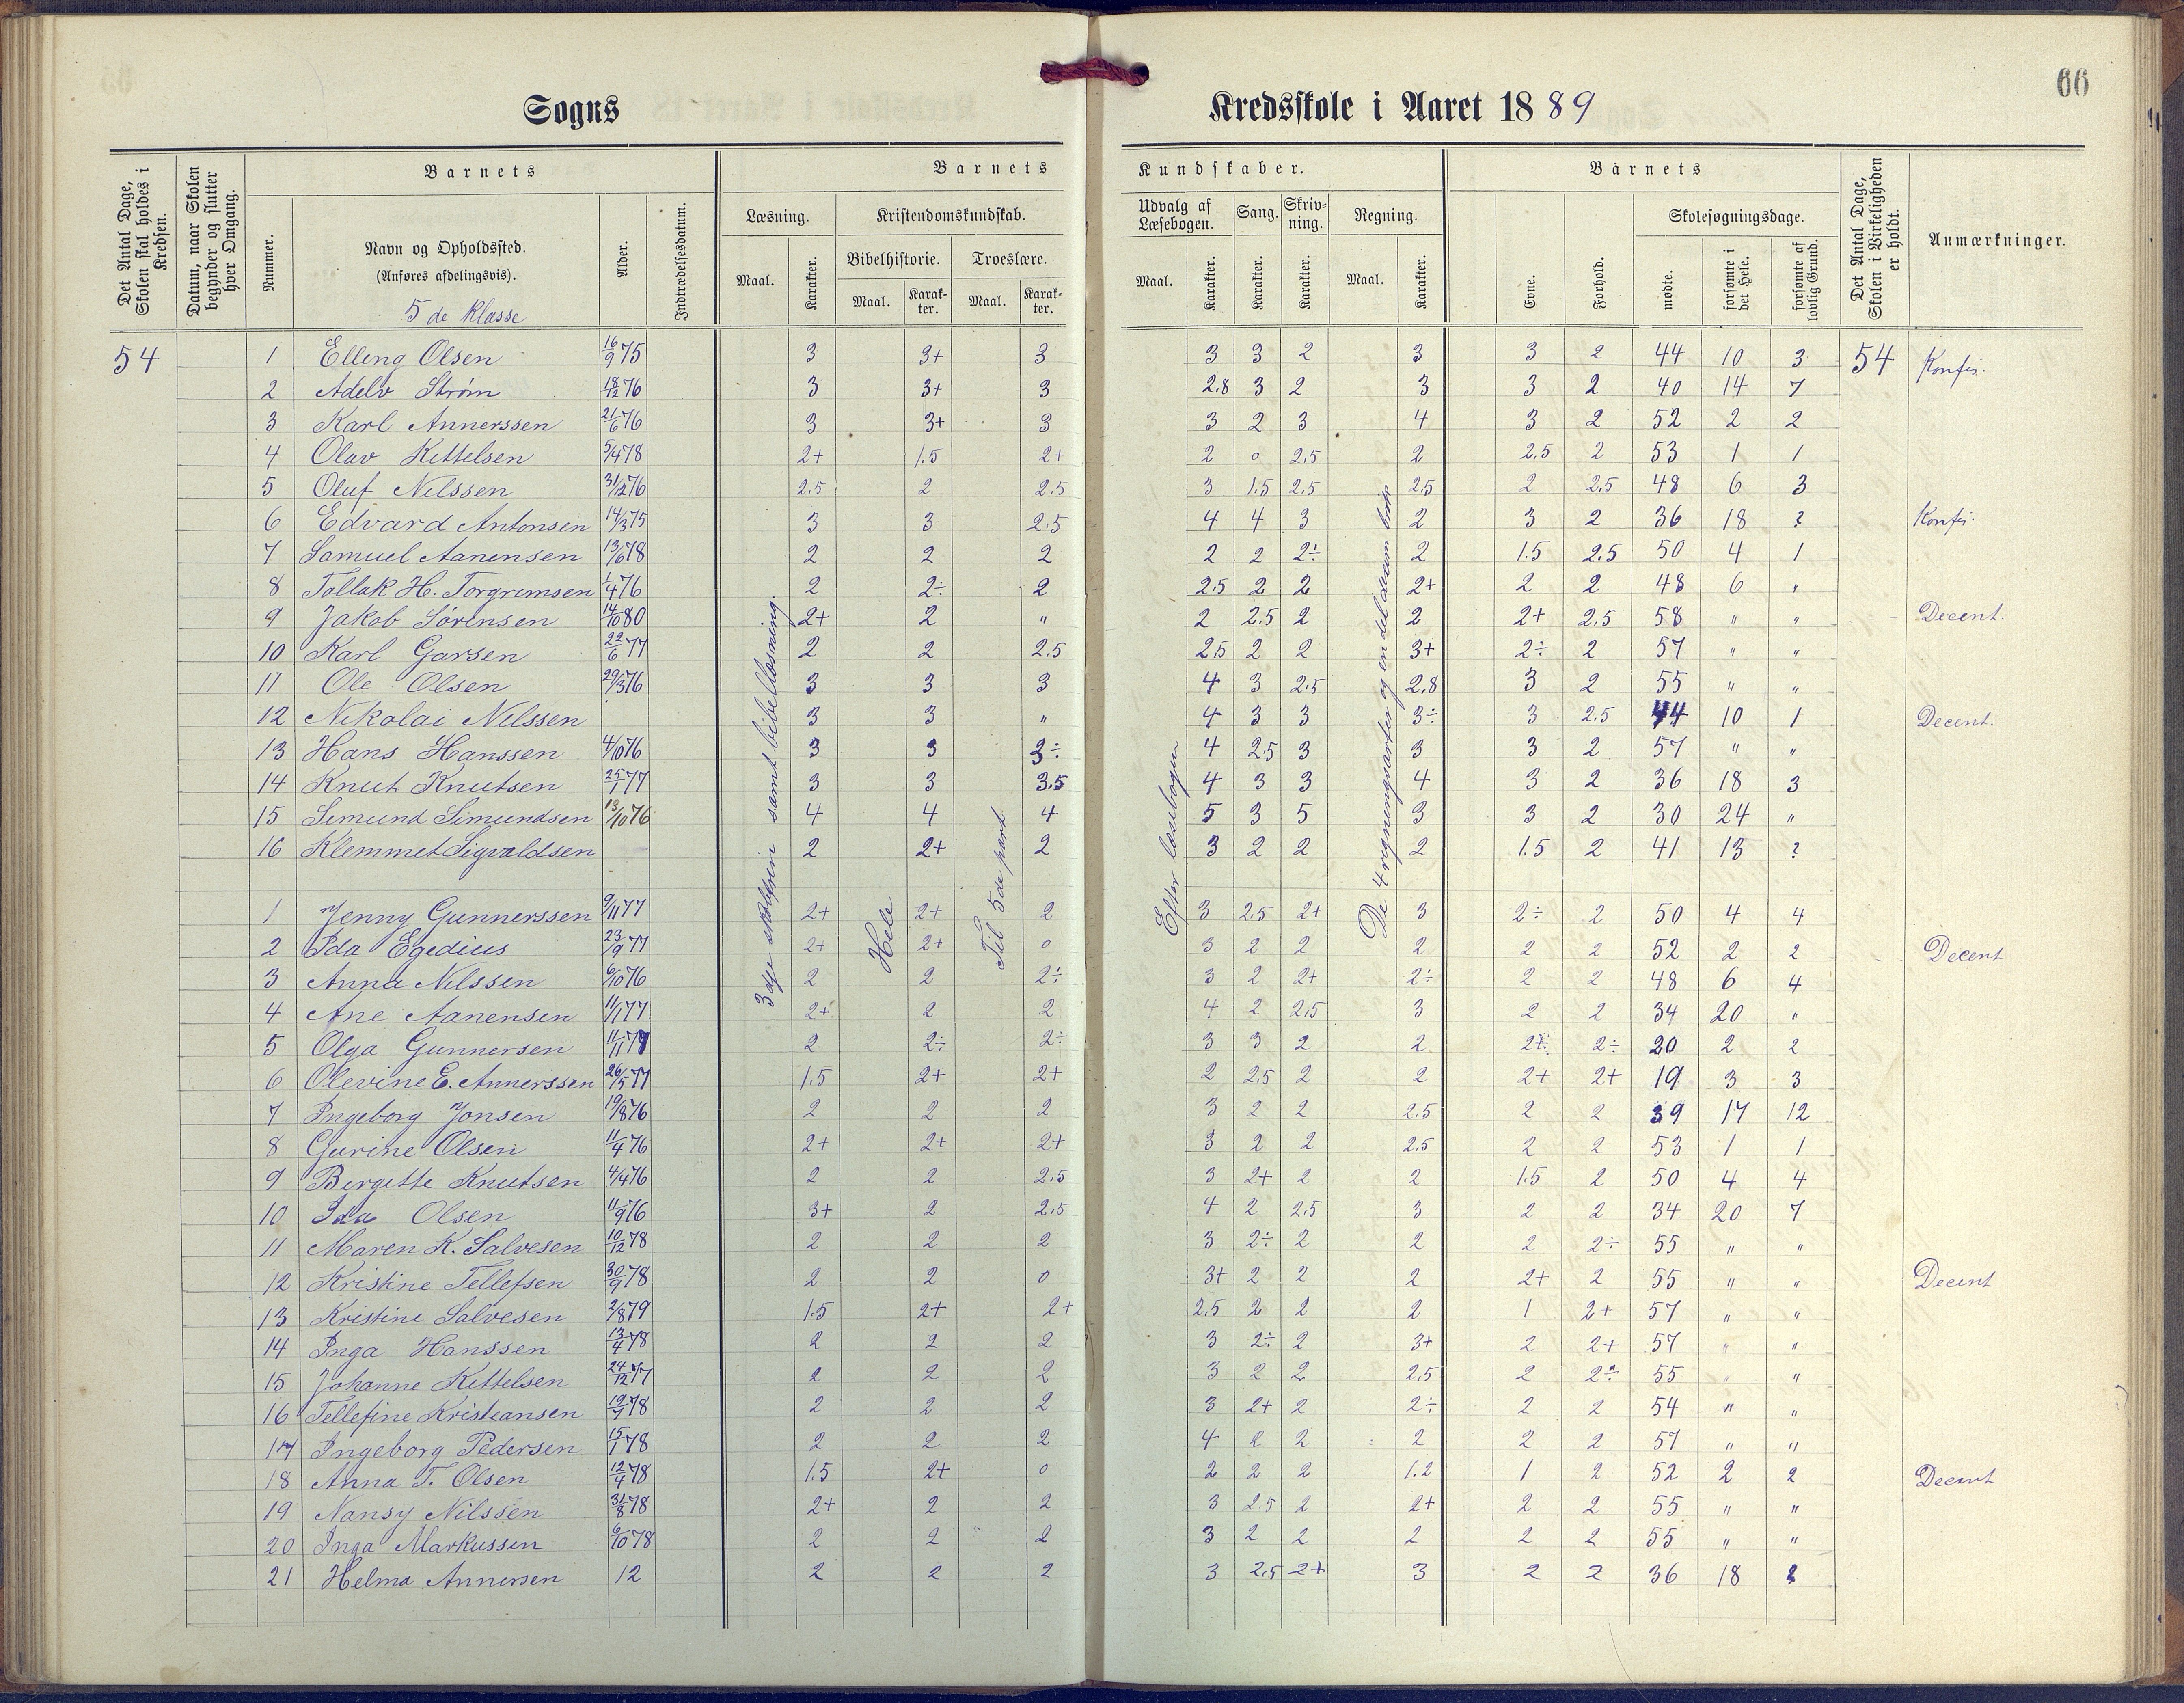 66
Sogns
Kredsskole i Aaret 1889
Det Antal Dage, Skolen skal holdes i Kredsen.
Datum, naar Skolen begynder og slutter hver Omgang.
Barnets
Barnets
Kundskaber.
Barnets
Det Antal Dage, Skolen i Virkeligheden er holdt.
Anmærkninger.
Nummer.
Navn og Opholdssted.
(Anføres afdelingsvis).
5 de Klasse
Alder.
Indtrædelsesdatum.
Læsning.
Kristendomskundskab.
Udvalg af Læsebogen.
Sang.
Skrivning.
Regning.
Evne.
Forhold.
Skolesøgningsdage.
Maal.
Karakter.
Bibelhistorie.
Troeslære.
Maal.
Karakter.
Maal.
Karakter.
Maal.
Karakter.
Karakter.
Karakter.
Maal.
Karakter.
mødte.
forsømte i det Hele.
forsømte af lovlig Grund.
54 1 Elling Olsen 16/9 75 3 3+ 3 3 3 2 3 3 2 44 10 3 54 Konfir.
2 Adelv Strøm 18/12 76 3 3+ 3 2.8 3 2 3 3 2 40 14 7
3 Karl Annerssen 21/6 76 3 3+ 3 3 2 3 4 3 2 52 2 2
4 Olav Kittelsen 5/4 78 2+ 1.5 2+ 2 0 2.5 2 2.5 2 53 1 1
5 Oluf Nilssen 31/12 76 2.5 2 2.5 3 1.5 2.5 2.5 2 2.5 48 6 3
6 Edvard Antonsen 14/3 75 3 3 2.5 4 4 3 2 3 2 36 18 ? Konfir.
7 Samuel Aanensen 13/6 78 2 2 2 2 2 2÷ 2 1.5 2.5 50 4 1
8 Tallak H. Torgrimsen 1/4 76 2 2÷ 2 2.5 2 2 2+ 2 2 48 6 "
9 Jakob Sørensen 14/10 80 2+ 2 " 2 2.5 2 2 2+ 2.5 58 " " Decent.
10 Karl Garsen 22/6 77 2 2 2.5 2.5 2 2 3+ 2÷ 2 57 " "
11 Ole Olsen 29/3 76 3 3 3 4 3 2.5 2.8 3 2 55 " "
12 Nikolai Nilssen 3 3 " 4 3 3 3÷ 3 2.5 44 10 1 Decent.
13 Hans Hanssen 4/10 76 3 3 3÷ 4 2.5 3 3 3 2 57 " "
14 Knut Knutsen 25/1 77 3 3 3.5 4 3 3 4 3 2 36 18 3
15 Simund Simundsen 13/10 76 4 4 4 5 3 5 3 3 2 30 24 "
16 Klemmet Sigvaldsen 2 2+ 2 3 2 2 2 1.5 2 41 13 ?
1 Jenny Gunnerssen 9/11 77 2+ 2+ 2 3 2.5 2+ 3 2÷ 2 50 4 4
2 Ida Egedius 23/9 77 2+ 2+ 0 3 2 2 2 2 2 52 2 2 Decent
3 Anna Nilssen 6/10 76 2 2 2÷ 3 2 2+ 2÷ 2 2 48 6 4
4 Ane Aanensen 11/1 77 2+ 2 2 4 2 2.5 3 2 2 34 20 "
5 Olga Gunnersen 11/11 78 2 2÷ 2÷ 3 3 2 2 2÷ 2÷ 20 2 2
6 Olevine E. Annerssen 26/5 77 1.5 2+ 2+ 2 2.5 2 2 2+ 2+ 19 3 3
7 Ingeborg Jonsen 19/8 76 2 2 2 3 2 2 2.5 2 2 39 17 12
8 Gurine Olsen 11/4 76 2+ 2+ 2+ 3 2 2 2.5 2 2 53 1 1
9 Birgitte Knutsen 4/4 76 2 2 2.5 3 2+ 2 2 1.5 2 50 4 4
10 Ida Olsen 11/9 76 3+ 2 2.5 4 2 2.5 3 2 2 34 20 7
11 Maren K. Salvesen 10/12 78 2 2 2 3 2÷ 2 2 2 2÷ 55 " "
12 Kristine Tellefsen 30/9 78 2 2 0 3+ 2 2 2 2+ 2 55 " " Decent
13 Kristine Salvesen 2/8 79 1.5 2+ 2+ 2.5 2 2 2 1 2+ 57 " "
14 Inga Hanssen 13/4 78 2 2 2 3 2÷ 2 3+ 2 2+ 57 " "
15 Johanne Kittelsen 24/12 77 2 2 2 3 2 2 2.5 2 2÷ 55 " "
16 Tellefine Kristiansen 19/7 78 2 2 2 3 2+ 2 2÷ 2 2 54 " "
17 Ingeborg Pedersen 15/1 78 2 2 2 4 2 2 2 2 2 57 " "
18 Anna T. Olsen 12/4 78 1.5 2+ 0 2 2 2 1.2 1 2 52 2 2 Decent
19 Nansy Nilssen 31/8 78 2+ 2 2 3 2.5 2 2+ 2 2 55 " "
20 Inga Markussen 6/10 78 2 2 2 3 2 2 2 2 2 55 " "
21 Helma Annersen 12 2 2 2 3 2.5 2+ 3 2 2 36 18 2
3dje skoletrin samt bibellæsning.
Hele
Til 5de part
Efter læsebogen
De 4 regningsarter og en del brøk